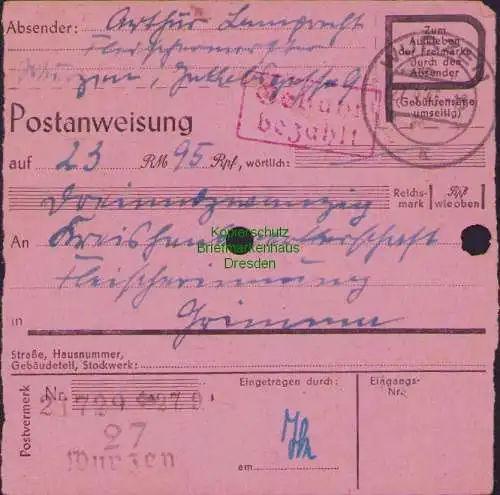 Absender: Arthur Lamprecht
Fleischermeister
Postanweisung
auf 23 RM 95 Rpf, wörtlich:
Dreiundzwanzig Reichs-mark Rpf wie oben
An Kreishandwerkerschaft
Fleischerinnung
in Grimma
Straße, Hausnummer,
Gebäudeteil, Stockwerk:
Zum
Aufkleben
der Freimarke
durch den
Absender
(Gebührensätze
umseitig)
Gebühr
bezahlt
WURZEN
a
Kopierschutz
Briefmarkenhaus
Dresden
Postvermerk
Nr.
21729
27
Wurzen
Eingetragen durch:
am
Eingangs-
Nr.